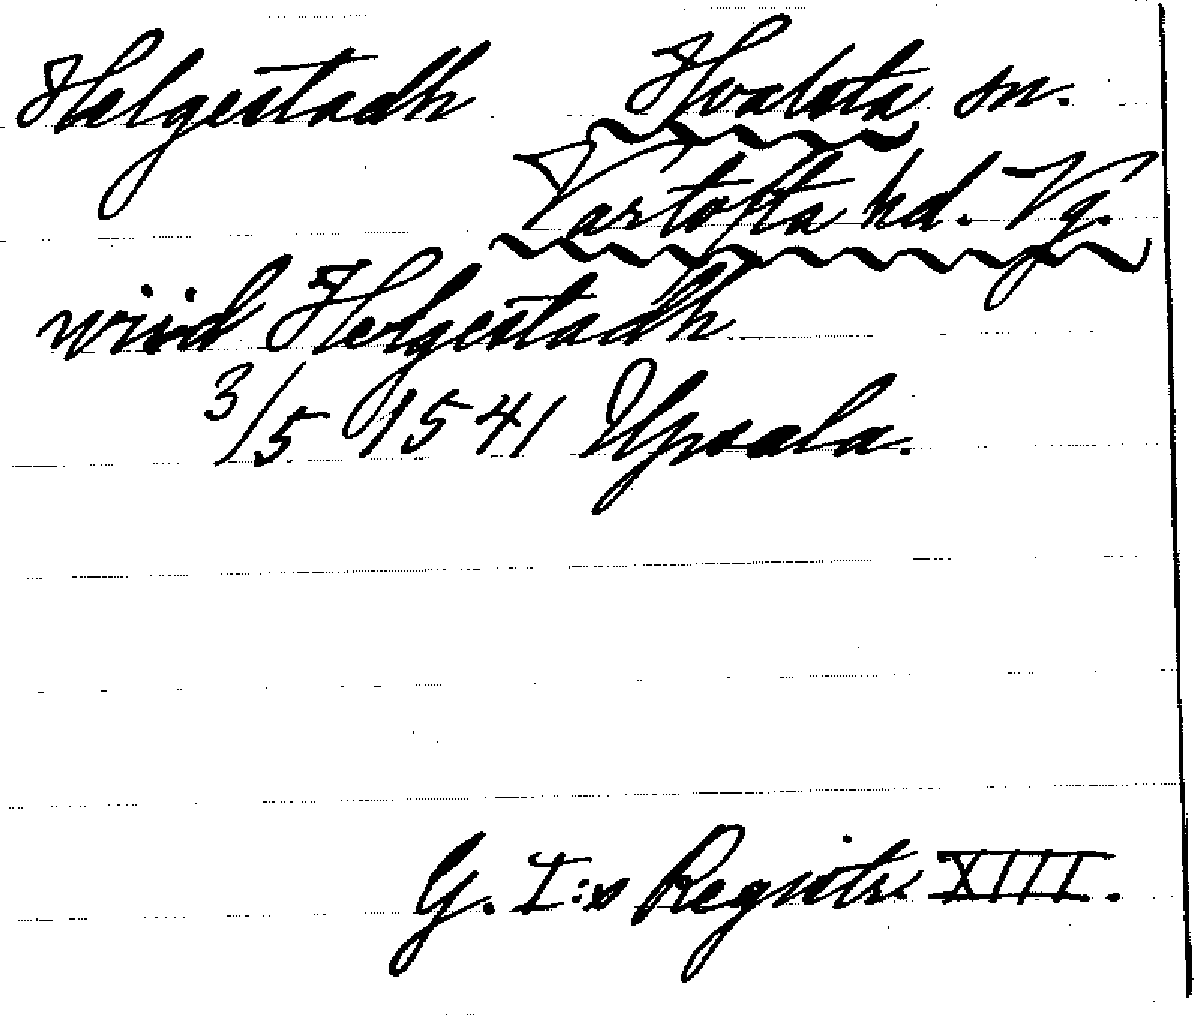 Helgestadh Hvalsta sn.
Vartofta hd. Vg.
wiid Helgestadh
3/5 1541 Upsala.
G. I:s Registr. XIII.